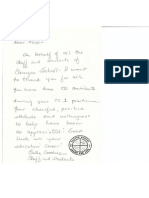 Dear
On behalf of all the
staff and students of
School, I want
to thank you for all
you have done to contribute
during your
Your cheerful, positive
attitude and willingness
to help have been
so appreciated. Good
luck with all your
education career!
Staff and Students